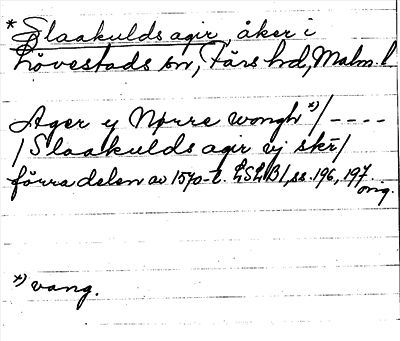 * Slaakulds agir, åker i
Lövestads sn, Färs hd, Malm. l
Ager y Nørre wongh *)/----
/Slaakulds agir vj skr/
förra delen av 1570-t. LSLB 1, ss. 196, 197
orig.
*) vang.